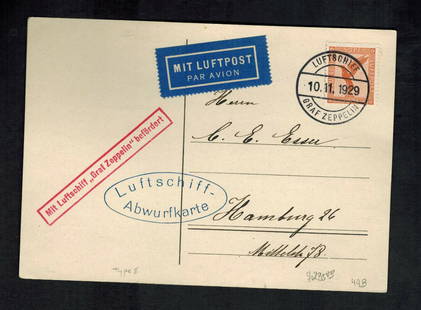 MIT LUFTPOST
PAR AVION
LUFTSCHIFF
10.11.1929
GRAF ZEPPELIN
Mit Luftschiff „Graf Zeppelin" befördert
Luftschiff-
Abwurfkarte
Herrn
C. E. Esser
Hamburg 26
Mittelstr. 78.
type I
49B